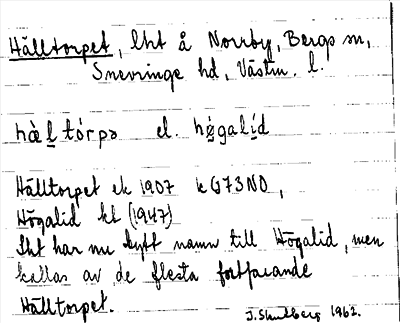 Hälltorpet, lht å Norrby, Bergs sn,
Snevringe hd, Västm. l.
hὲḷtórpə el. hø̀galíd
Hälltorpet ek 1907 k G73NO,
Högalid kk (1947)
Lht har nu bytt namn till Högalid, men
kallas av de flesta fortfarande
Hälltorpet.
1962.